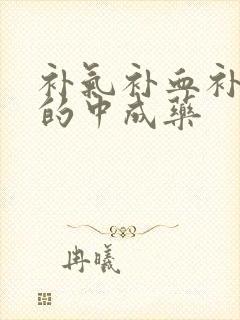 补氣补血补
的中成藥
冉曦